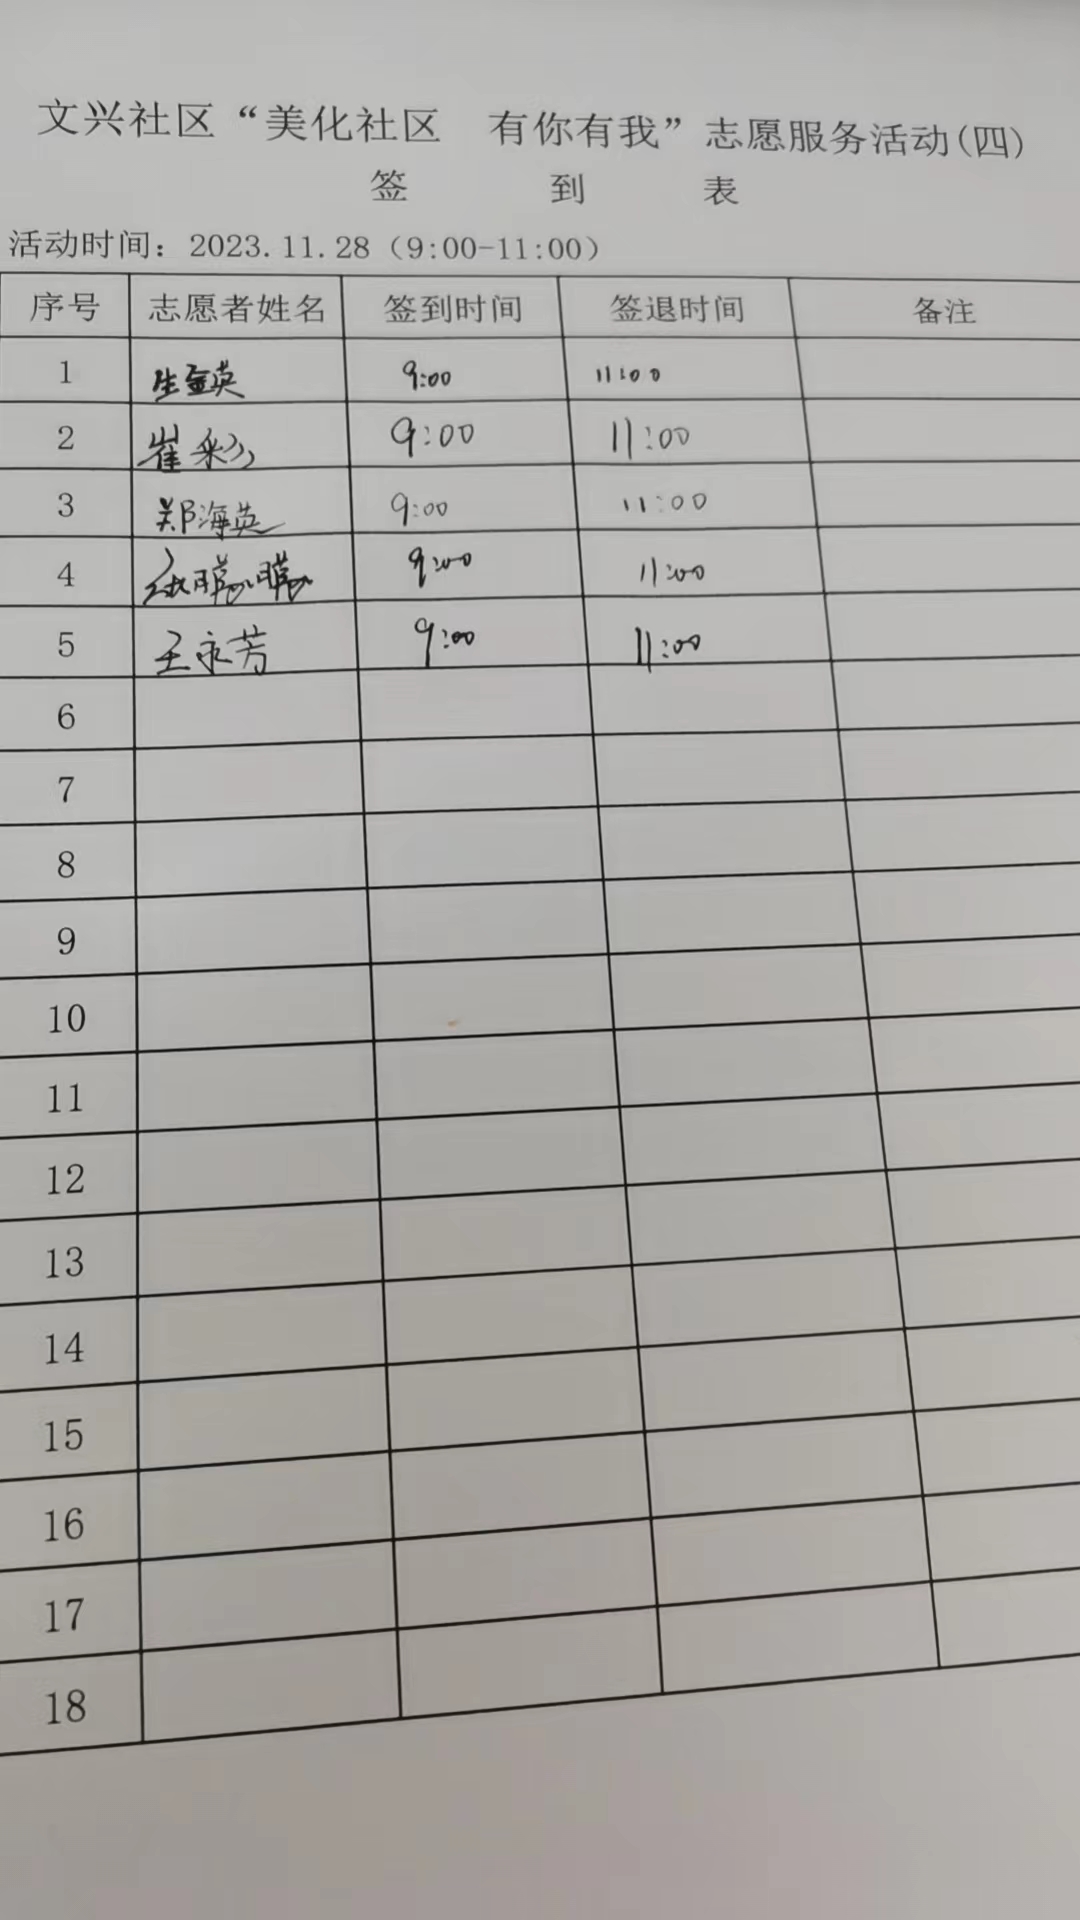 文兴社区“美化社区 有你有我”志愿服务活动(四)
签 到 表
活动时间：2023.11.28（9:00-11:00）
序号 志愿者姓名 签到时间 签退时间 备注
1 生金英 9:00 11:00
2 崔彩 9:00 11:00
3 郑海英 9:00 11:00
4 9:00 11:00
5 王永芳 9:00 11:00
6
7
8
9
10
11
12
13
14
15
16
17
18